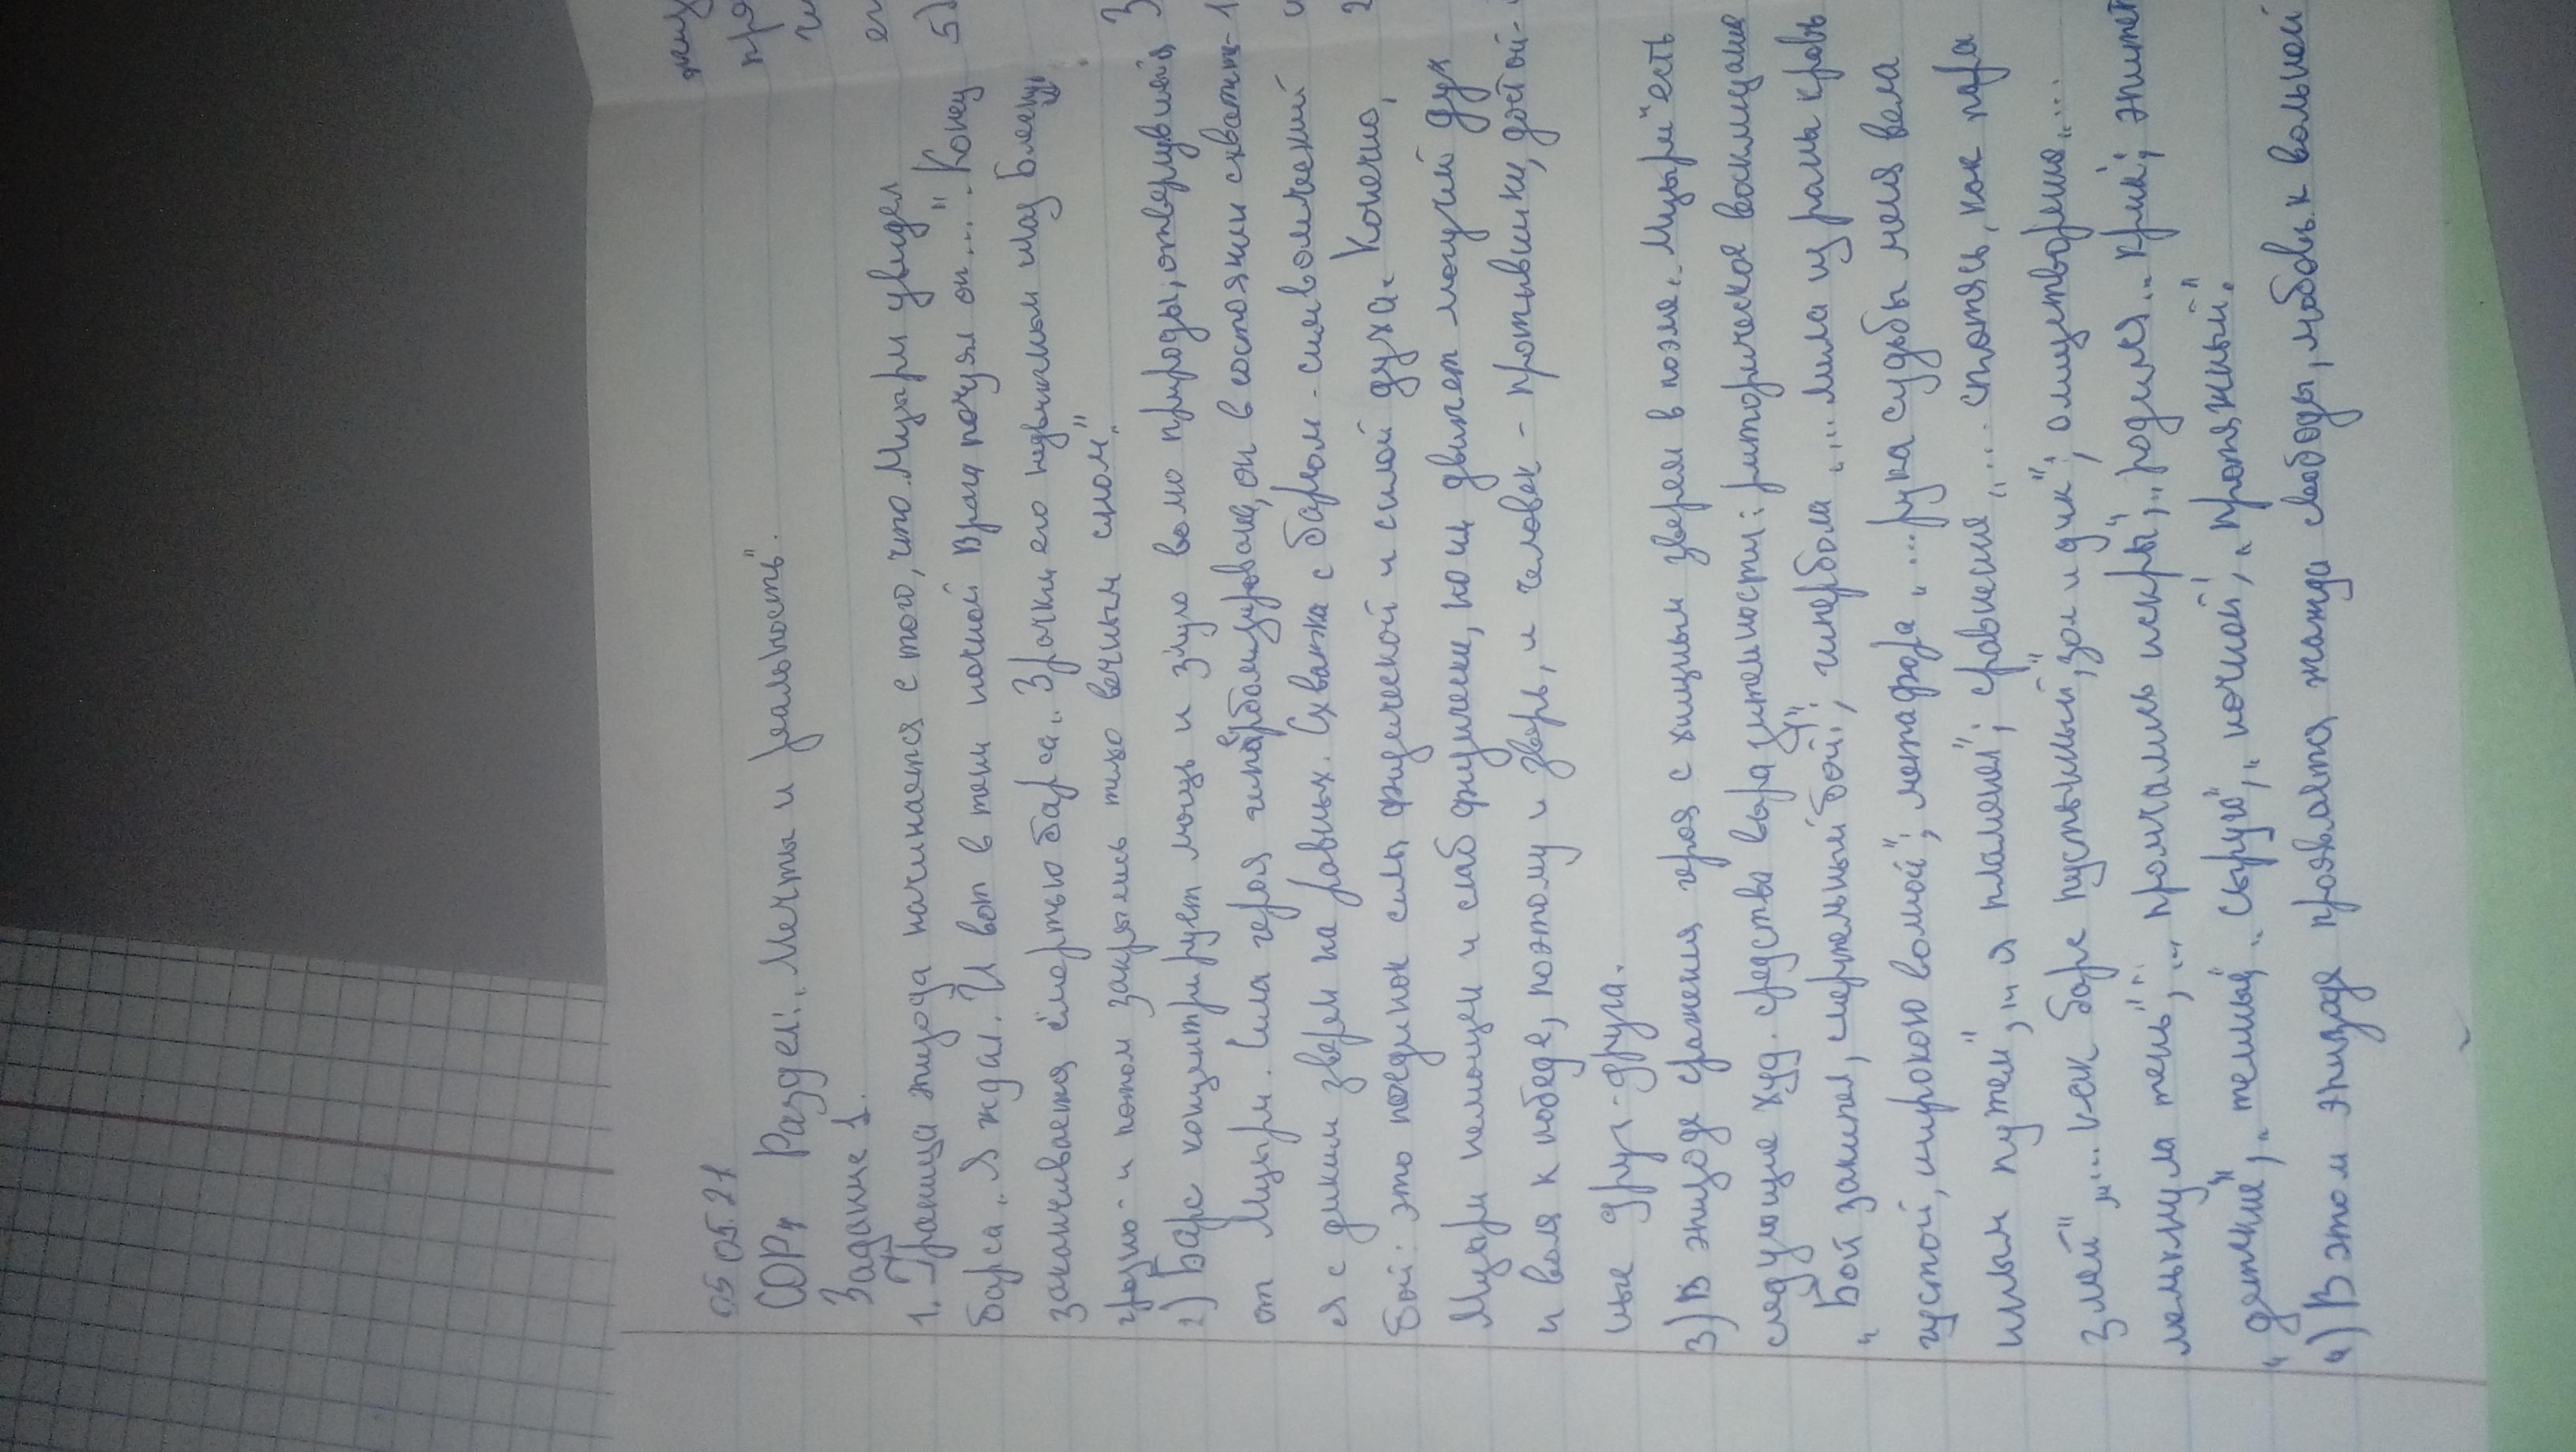 05 05.21
СОР4 Раздел: „Мечты и реальность".
Задание 1.
1. Граница эпизода начинается с того, что Мцыри увидел
барса „Я ждал. И вот в тени ночной Врага почуял он...." Конец
заканчивается смертью барса „Зрачки его недвижным глаз Блеснули
грозно - и потом закрылись тихо вечным сном".
2) Барс концентрирует мощь и злую волю природы, отвернувшийся
от Мцыри. Сила героя гиперболизирована, он в состоянии схватит-
ся с диким зверем на равных. Схватка с барсом - символический
бой: это поединок силы физической и силой духа. Конечно,
Мцыри немощен и слаб физически, но им движет могучий дух
и воля к победе, поэтому и зверь, и человек - противники, достой-
ные друг-друга.
3) В эпизоде сражения героя с хищным зверем в поэме „Мцыри" есть
следующие худ. средства выразительности: риторическое восклицание
„Бой закипел, смертельный бой!"; гипербола „... мгла из раны кровь
густой, широкою волной"; метафора „... рука судьбы меня вела
иным путем", „... я пламенел; сравнение „... сплетясь, как пара
змей", „... как барс пустынный, зол и дик"; олицетворение „...
мелькнула тень", „... промчались искры", „родился... крик; эпитет
„ дятчие", „темный „сырую", „ночной", „протяжный".
4) В этом эпизоде проявляется жажда свободы, любовь к вольной